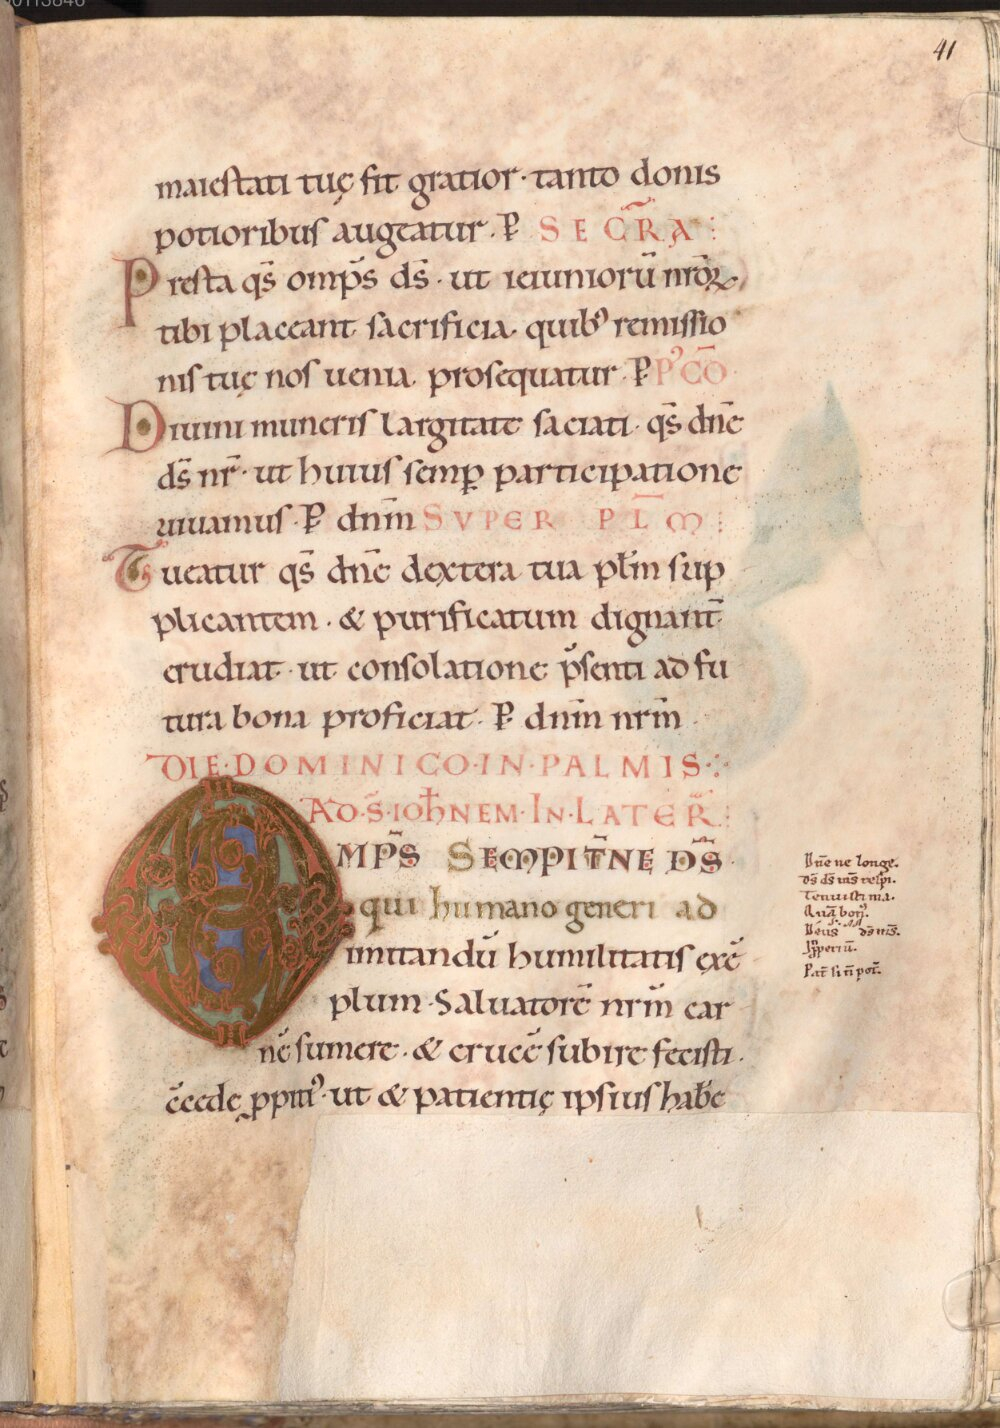 41
maiestati tuę sit gratior · tanto donis
potioribus augeatur · P̄ SEC̄RA :
Presta qs̄ omp̄s ds̄ · ut ieiuniorū nr̄oꝝ
tibi placeant sacrificia · quibꝰ remissio
nis tuę nos uenia prosequatur · P̄ PꝰCŌ
Diuini muneris largitate saciati · qs̄ dn̄e
ds̄ nr̄ · ut huius semꝑ participatione
uiuamus · P̄ dn̄m SVPER PL̄M :
Tueatur qs̄ dn̄e dextera tua pl̄m sup
plicantem · & purificatum dignant̄
erudiat · ut consolatione p̄senti ad fu
tura bona proficiat · P̄ dn̄m nr̄m
DIE · DOMINICO · IN · PALMIS :
AD · S̄ · IOH̄NEM · IN · LATER̄ :
OMPS̄ SEMPIT̄NE DS̄ ·
qui humano generi ad
imitandū humilitatis exē
plum · Saluatorē nr̄m car
nē sumere · & crucē subire fecisti ·
cēede ꝓpitiꝰ · ut & patientię ipsius hab̄e
Dn̄e ne longe.
Ds̄ ds̄ ms̄ respi.
Tenuisti ma.
Pat̄ si n̄ pot̄.